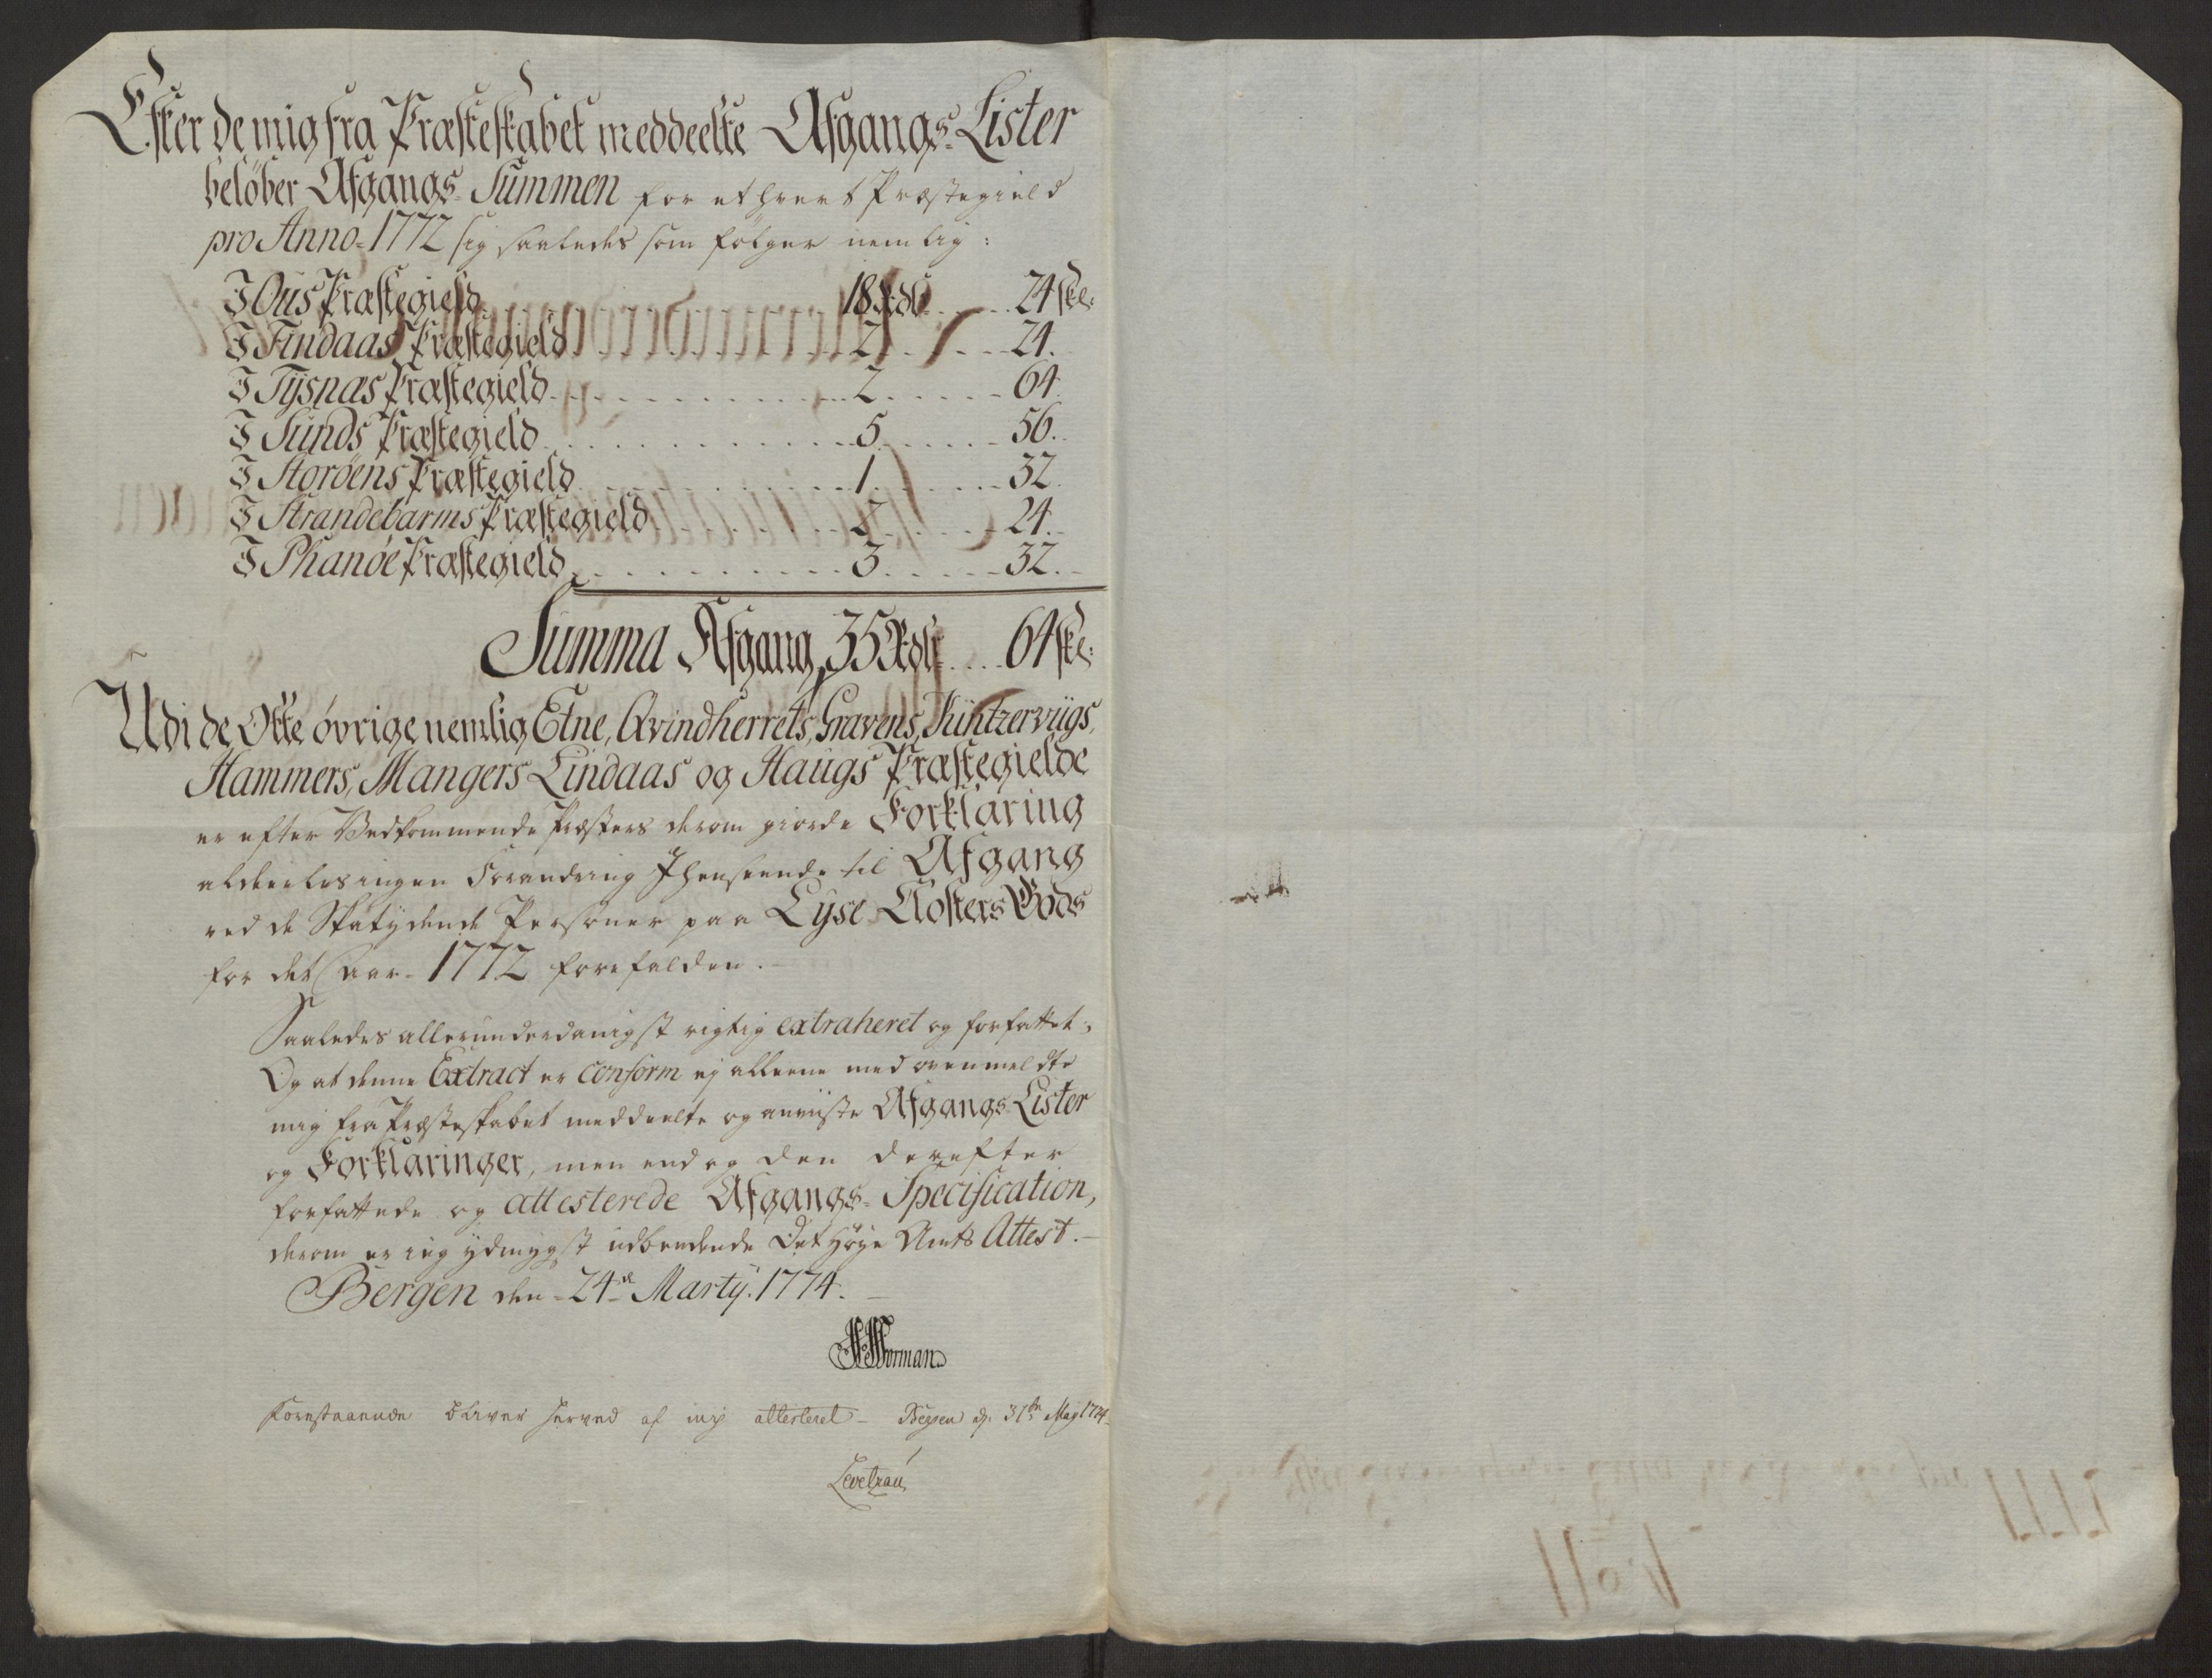 Efter de mig fra Præsteskabet meddeelte Afgangs-Lister
beløber Afgangs-Summen for ethvert Præstegield
pro Anno-1772 sig saaledes som følger nemlig:
I Ous Præstegield 18 Rdlr 24 skl:
I Findaas Præstegield 2 24.
I Tysnæs Præstegield 2 64.
I Sunds Præstegield 5 56.
I Storøens Præstegield 1 32.
I Strandebarms Præstegield 2 24.
I Phanøe Præstegield 3 32.
Summa Afgang, 35 Rdlr 64 skl:
Udi de Otte øvrige nemlig Etne, Qvindherrets, Gravens, Kintzerviigs,
Hammers, Mangers Lindaas og Haugs Præstegielde
er efter Vedkommende Præsters derom giorde Forklaring
aldeeles ingen Forandring Ihenseende til Afgang
ved de Skatydende Personer paa Lyse Closters Gods
for det Aar-1772 forefalden.-
Saaledes allerunderdanigst rigtig extraheret og forfattet;
Og at denne Extract er conform ej alleene med ovenmeldte
mig fra Præsteskabet meddeelte og anviiste Afgangs-Lister
og Forklaringer, men endog den derefter
forfattede og attesterede Afgangs-Specification,
derom er jeg ydmygst udbedende Det Høye Amts Attest.-
Bergen den-24de Martij.1774.-
Worman
Forestaaende bliver herved af mig attesteret- Bergen d: 31te Maij 1774
Levetzau